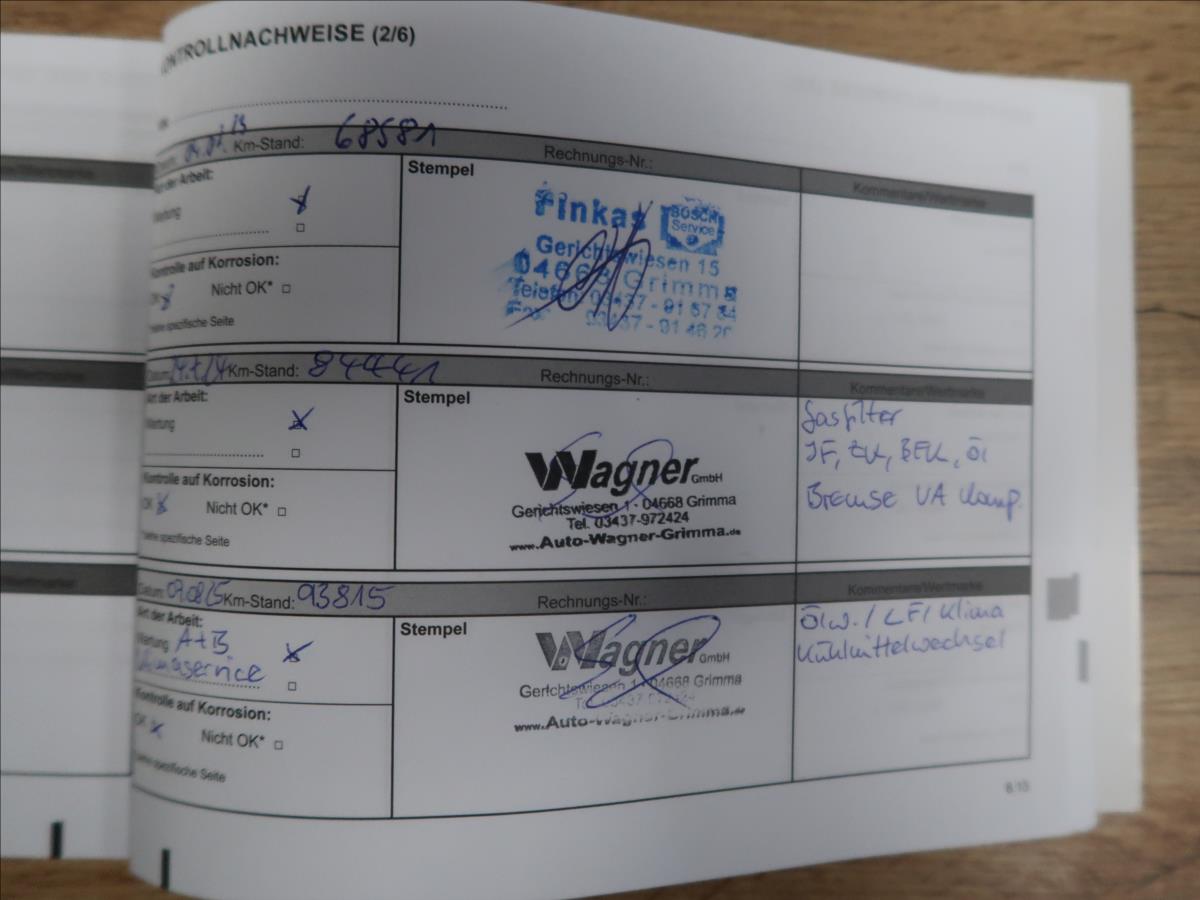 ONTROLLNACHWEISE (2/6)
Km-Stand: 68581 Rechnungs-Nr.: Kommentare/Wertmarke
der Arbeit:
Wartung
Stempel
Finkas BOSCH Service
Gerichtswiesen 15
04668 Grimma
Telefon 03437 - 91 67 84
Fax 03437 - 91 46 20
Kontrolle auf Korrosion:
OK Nicht OK*
siehe spezifische Seite
Datum: Km-Stand: 84441 Rechnungs-Nr.: Kommentare/Wertmarke
Art der Arbeit:
Wartung
Stempel
Wagner GmbH
Gerichtswiesen 1 · 04668 Grimma
Tel. 03437-972424
www.Auto-Wagner-Grimma.de
Gasfilter
IF, ZK, BFK, Öl
Bremse VA komp.
Kontrolle auf Korrosion:
OK Nicht OK*
siehe spezifische Seite
Datum: Km-Stand: 93815 Rechnungs-Nr.: Kommentare/Wertmarke
Art der Arbeit:
Wartung A+B
Klimaservice
Stempel
Wagner GmbH
Gerichtswiesen 1 · 04668 Grimma
Tel. 03437-972424
www.Auto-Wagner-Grimma.de
Ölw. / LF / Klima
Kühlmittelwechsel
Kontrolle auf Korrosion:
OK Nicht OK*
siehe spezifische Seite